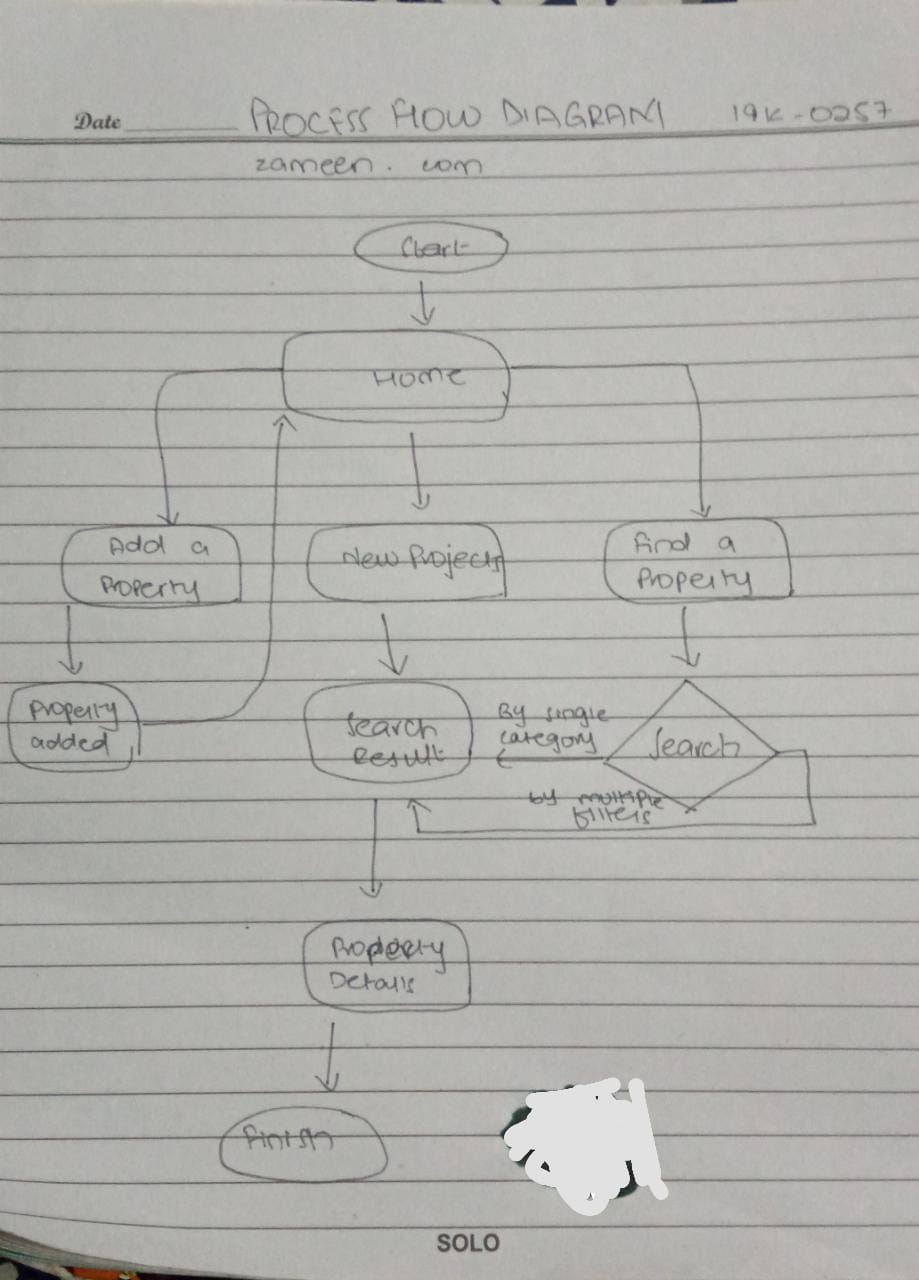 Date PROCESS FLOW DIAGRAM 19K-0257
zameen.com
Start
Home
Add a
Property
New Projects
Find a
Property
Property
added
Search
Result
By single
category
Search
by multiple
filters
Property
Details
Finish
SOLO